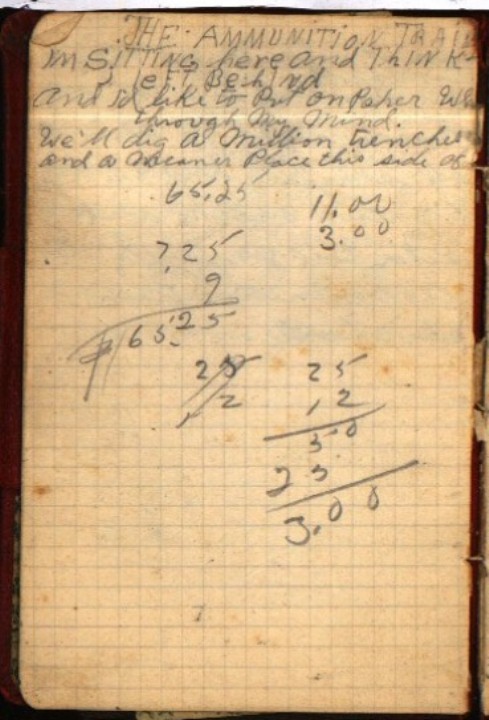 THE AMMUNITION TRAIN
Im SITTING here and THINK
LEFT BeHind
and Id like to Put on Paper
through My Mind.
We'll dig a Million trenches
and a Meaner Place this side of
65.25
11.00
3.00
7.25
9
65.25
25
12
25
12
50
25
3.00